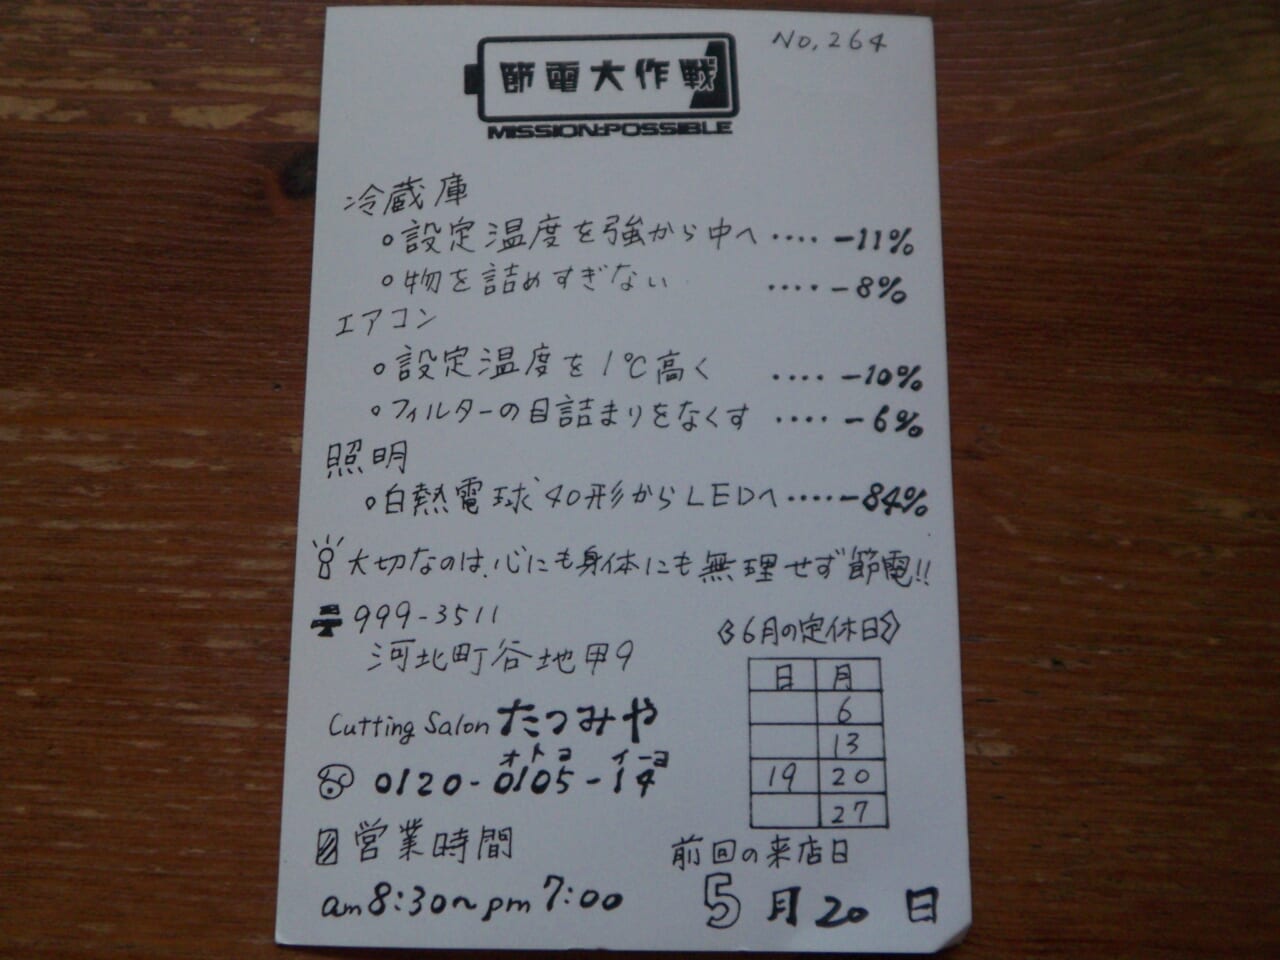 No,264
節電大作戦
MISSION:POSSIBLE
冷蔵庫
○設定温度を強から中へ‥‥-11%
○物を詰めすぎない ‥‥-8%
エアコン
○設定温度を1℃高く ‥‥-10%
○フィルターの目詰まりをなくす ‥‥-6%
照明
○白熱電球40形からLEDへ‥‥-84%
大切なのは、心にも身体にも無理せず節電!!
999-3511
河北町谷地甲9
Cutting Salon たつみや
オトコ イーヨ
0120-0105-14
営業時間
am8:30~pm7:00
《6月の定休日》
日 月
6
13
19 20
27
前回の来店日
5月20日